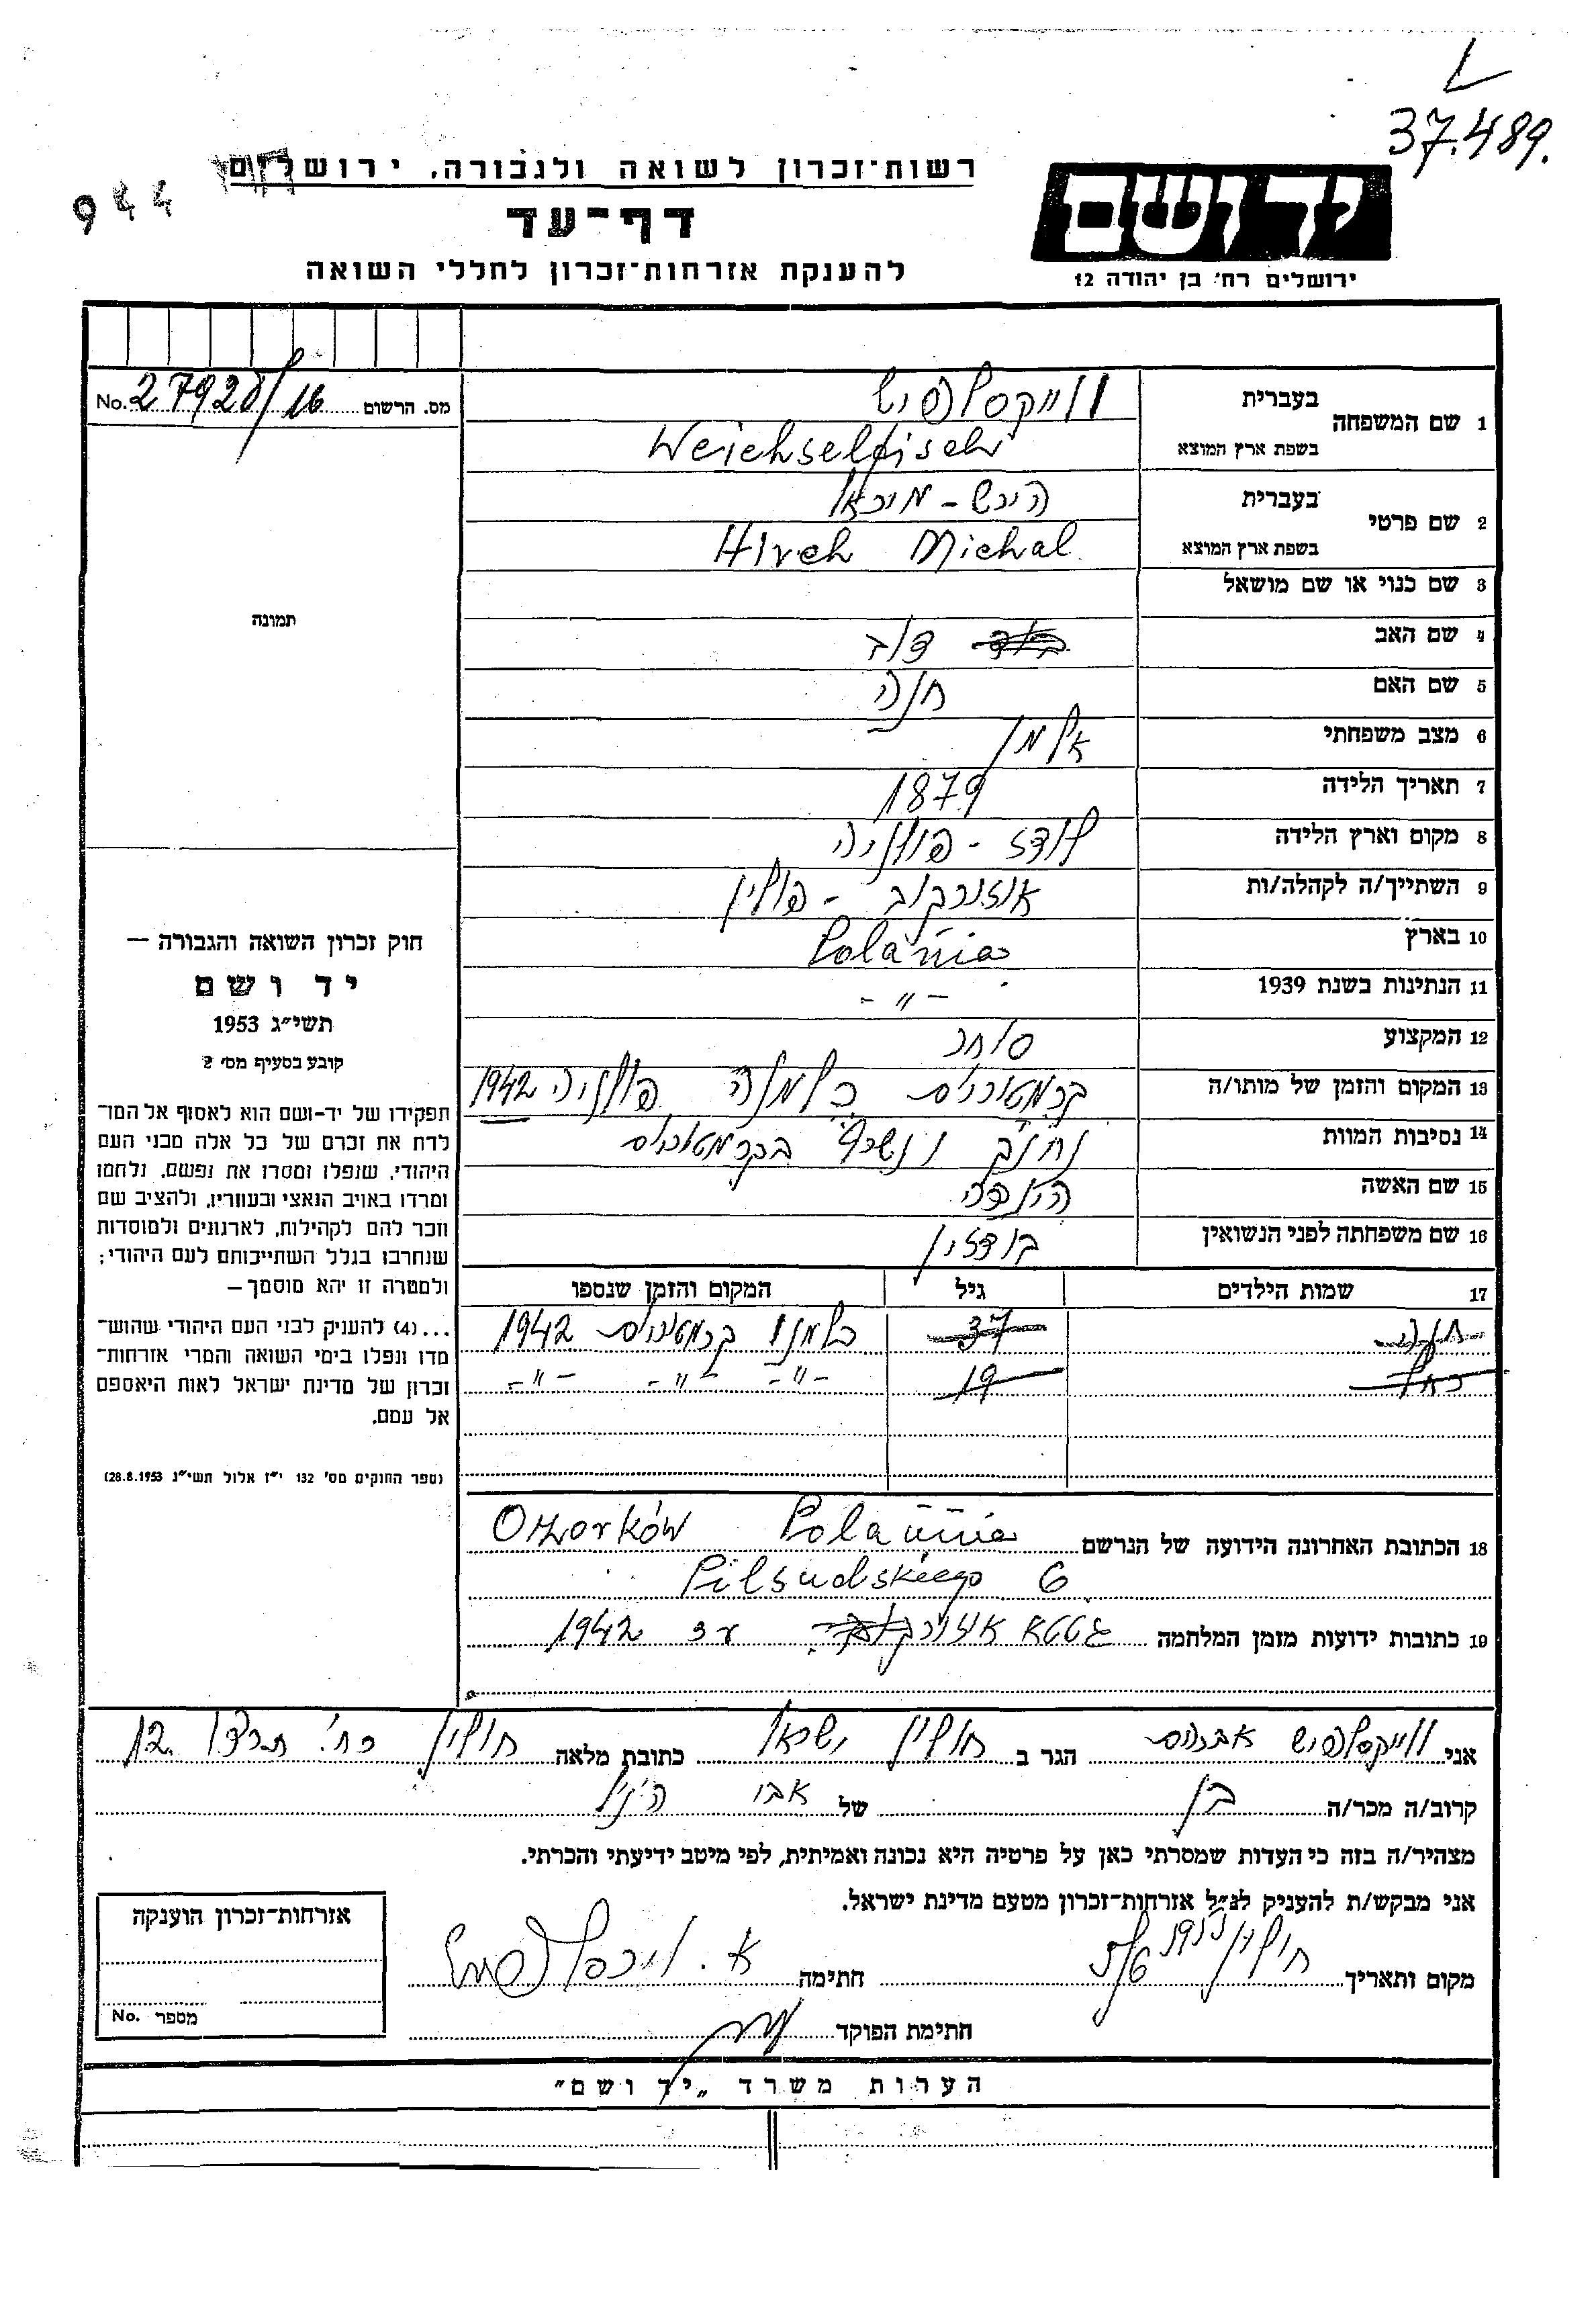 37.489.
944
רשות־זכרון לשואה ולגבורה, ירושלים
יד ושם
דף־עד
ירושלים רח׳ בן יהודה 12
להענקת אזרחות־זכרון לחללי השואה
מס. הרשום 27920/16 No.
1 שם המשפחה בעברית ווייקסלפיש
בשפת ארץ המוצא Weichselfisch
2 שם פרטי בעברית הירש - מיכאל
בשפת ארץ המוצא Hirch Michal
3 שם כנוי או שם מושאל
תמונה
4 שם האב דוד
5 שם האם חנה
6 מצב משפחתי אלמן
7 תאריך הלידה 1879
8 מקום וארץ הלידה לודז - פולניה
9 השתייך/ה לקהלה/ות אוזורקוב - פולין
10 בארץ Polania
11 הנתינות בשנת 1939 -"-
12 המקצוע סוחר
13 המקום והזמן של מותו/ה קרמטוריום כלמנה פולניה 1942
14 נסיבות המוות נחנק ונשרף בקרמטוריום
15 שם האשה הינדה
16 שם משפחתה לפני הנשואין
17 שמות הילדים גיל המקום והזמן שנספו
חנה 37 כלמנו קרמטוריום 1942
רחל 19 -"- -"- -"-
18 הכתובת האחרונה הידועה של הנרשם Ozorków Polania
Pilsudskiego 6
19 כתובות ידועות מזמן המלחמה גטטא אוזורקוב עד 1942
חוק זכרון השואה והגבורה —
יד ושם
תשי״ג 1953
קובע בסעיף מס׳ 2
תפקידו של יד־ושם הוא לאסוף אל המו־
לדת את זכרם של כל אלה מבני העם
היהודי, שנפלו ומסרו את נפשם, נלחמו
ומרדו באויב הנאצי ובעוזריו, ולהציב שם
וזכר להם לקהילות, לארגונים ולמוסדות
שנחרבו בגלל השתייכותם לעם היהודי;
ולמטרה זו יהא מוסמך —
...(4) להעניק לבני העם היהודי שהוש־
מדו ונפלו בימי השואה והמרי אזרחות־
זכרון של מדינת ישראל לאות היאספם
אל עמם.
(ספר החוקים מס׳ 132 י״ז אלול תשי״ג 28.8.1953)
אני ווייקסלפיש אברהם הגר ב חולון ישראל כתובת מלאה חולון רח׳ 12
קרוב/ה מכר/ה בן של אבי הנ״ל
מצהיר/ה בזה כי העדות שמסרתי כאן על פרטיה היא נכונה ואמיתית, לפי מיטב ידיעתי והכרתי.
אני מבקש/ת להעניק לנ״ל אזרחות־זכרון מטעם מדינת ישראל.
מקום ותאריך חולון חתימה א.
חתימת הפוקד
אזרחות־זכרון הוענקה
מספר No.
הערות משרד „יד ושם"